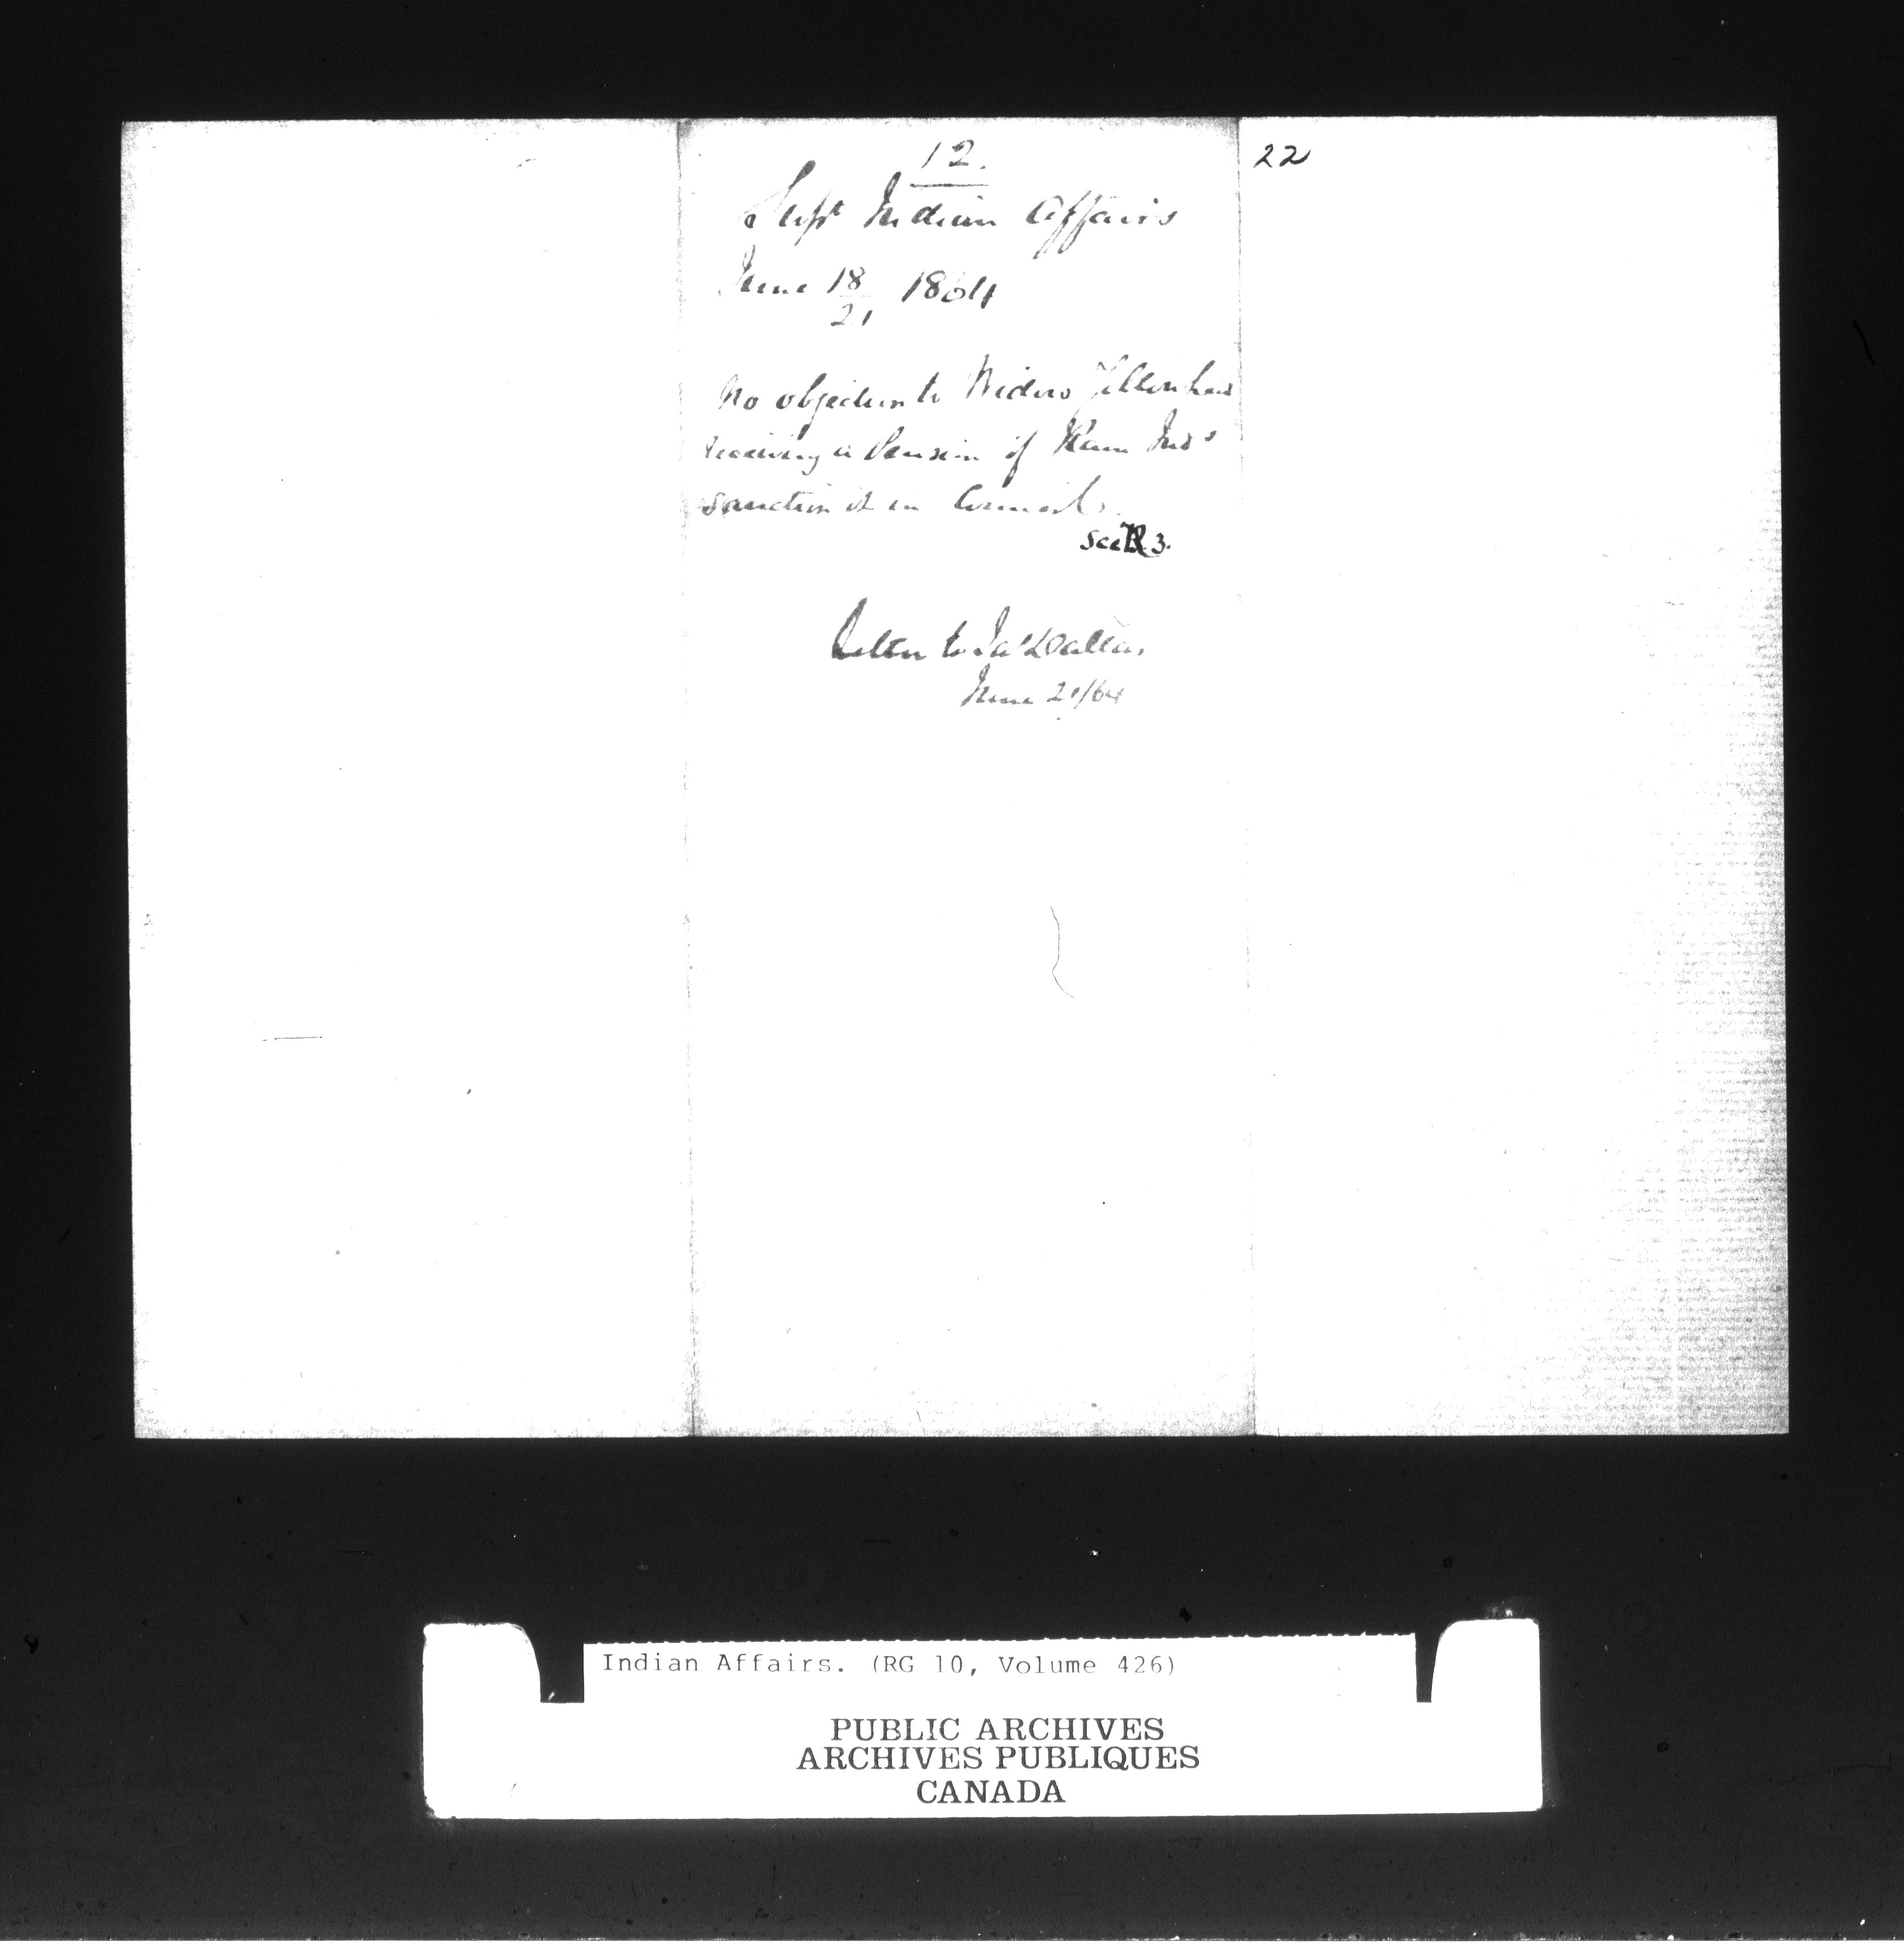 12.
22
Supt Indian Affairs
June 18/21 1864
No objection to Widow
receiving a Pension if Ram Inds
sanction it in Council.
See R. 3.
Letter to Jas Dallas
June 21/64
Indian Affairs. (RG 10, Volume 426)
PUBLIC ARCHIVES
ARCHIVES PUBLIQUES
CANADA